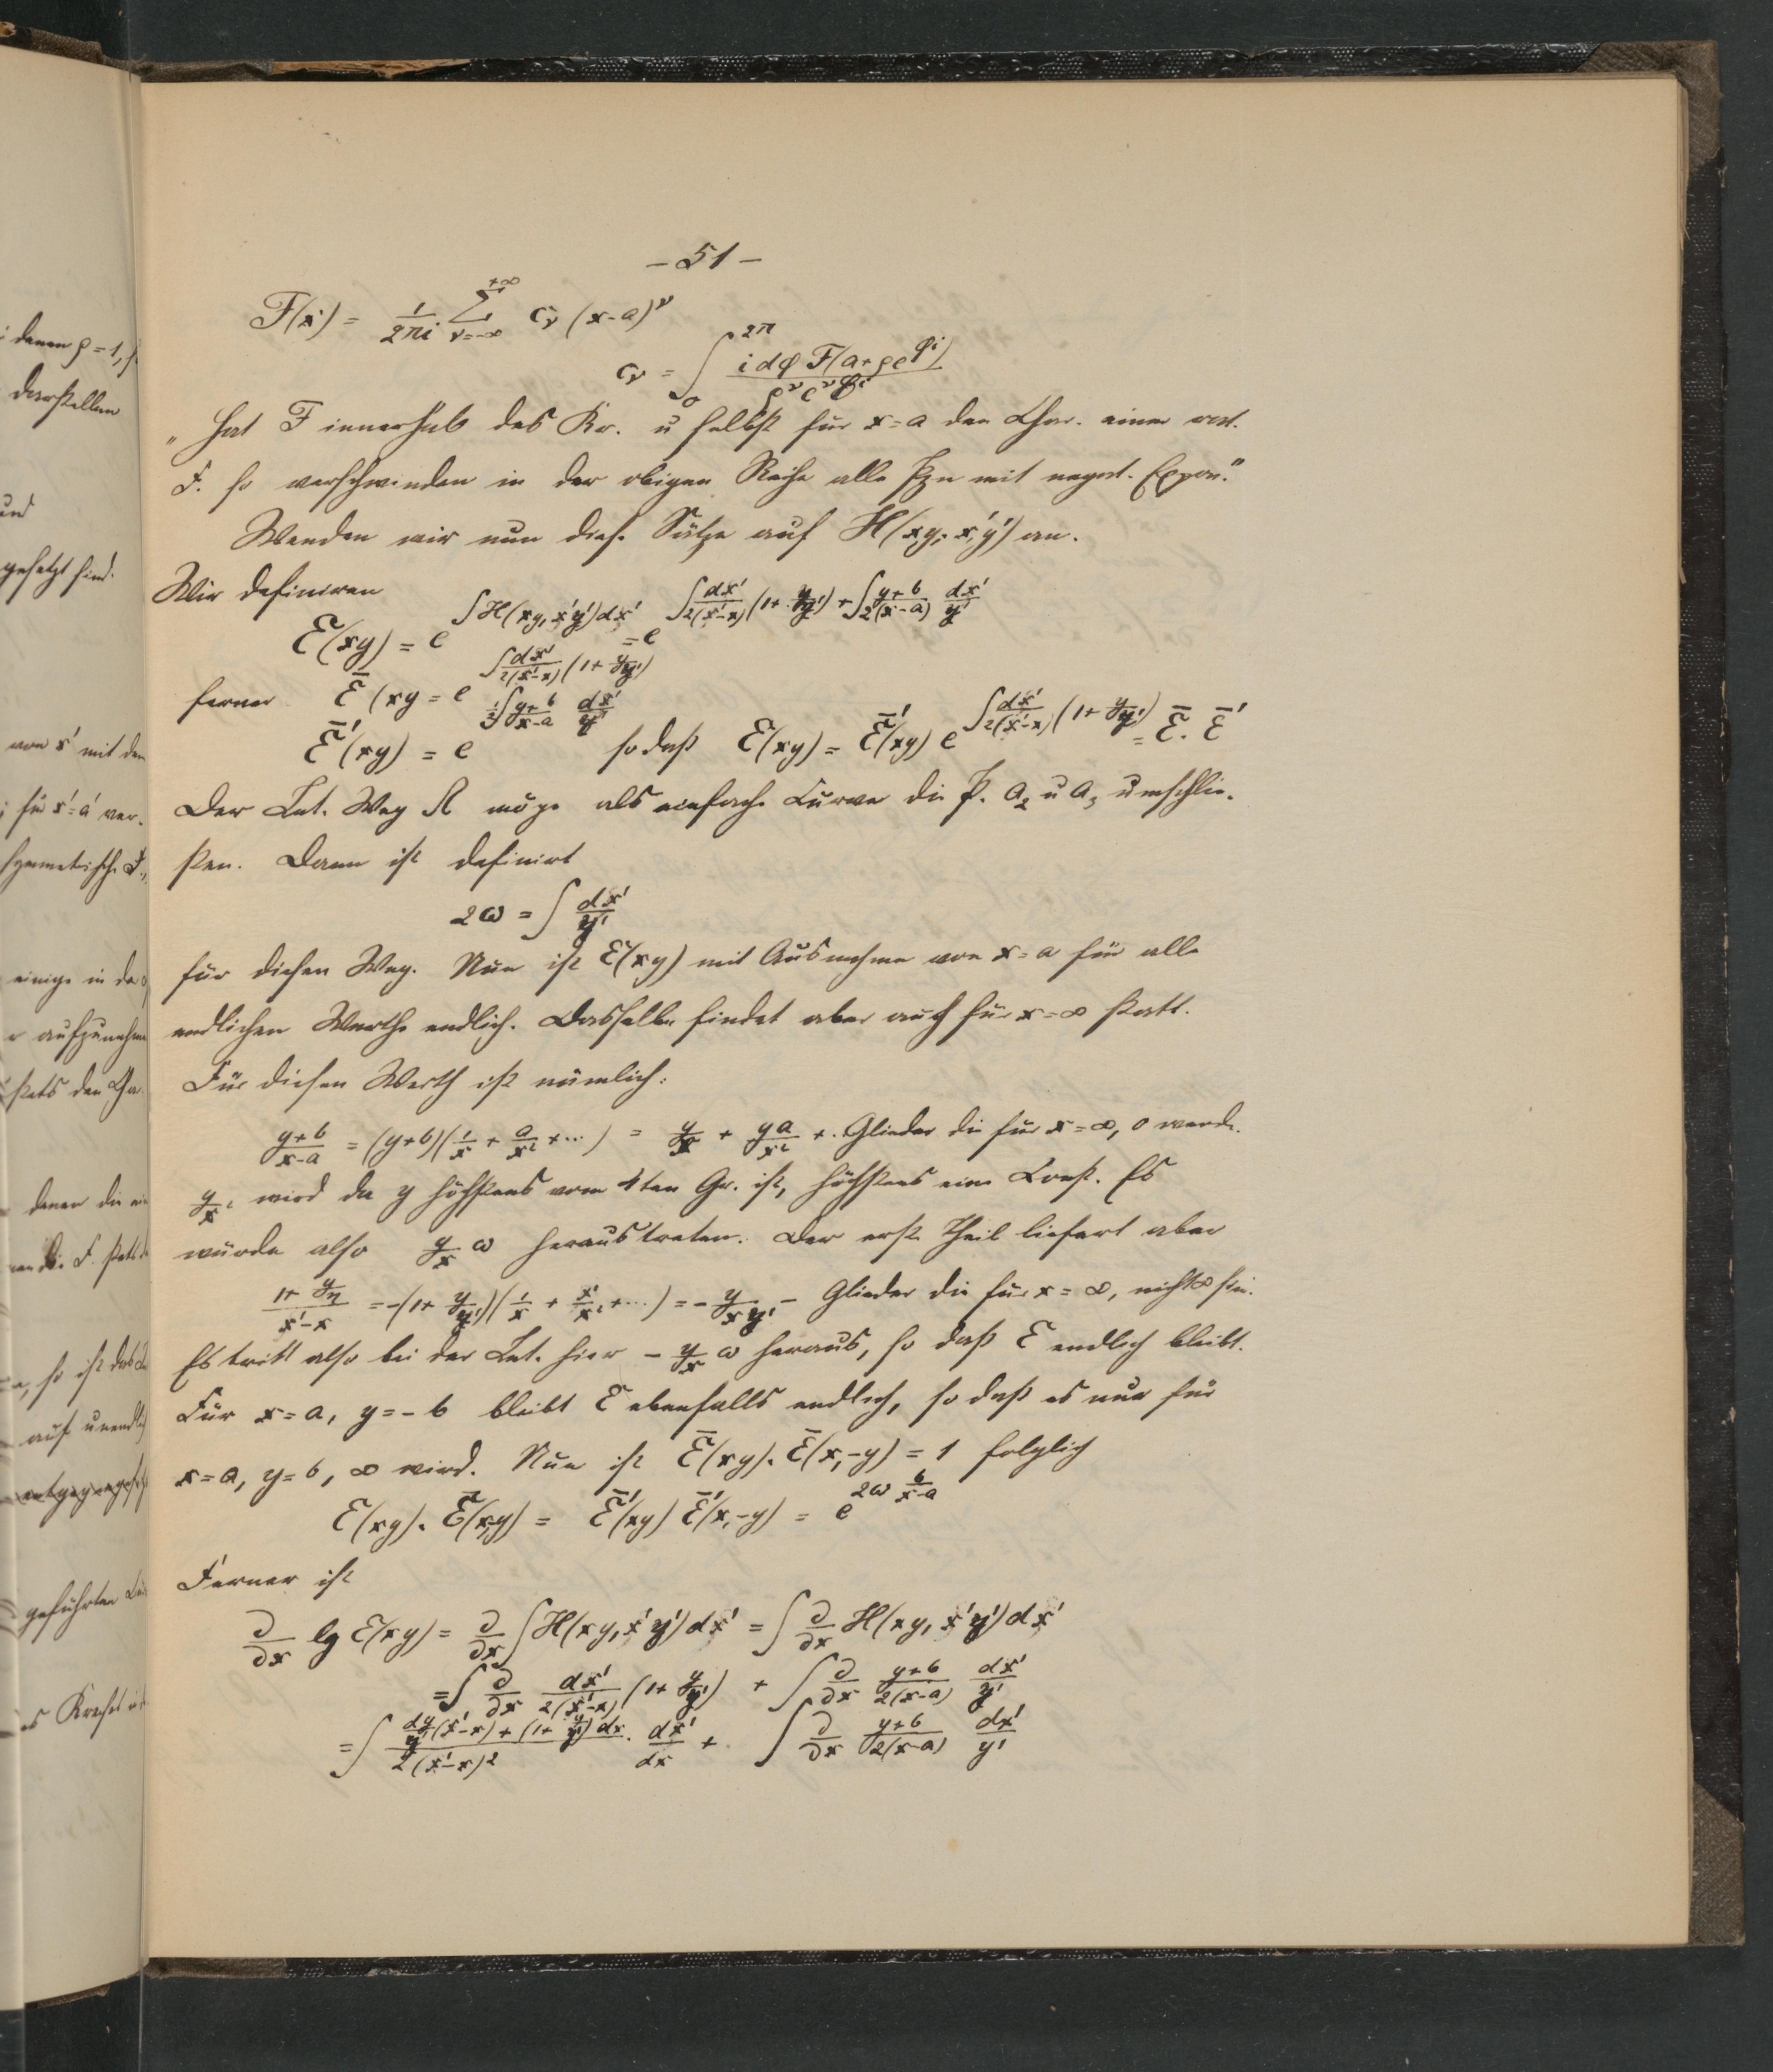 – 51 –
F(x) = 1/2πi Σ_{ν=-∞}^{+∞} c_ν (x-a)^ν
c_ν = ∫_0^{2π} i dφ F(a+ρe^{φi}) / ρ^ν e^{νφi}
„Hat F innerhalb des Kr. u selbst für x=a den Char. einer rat.
F. so verschwinden in der obigen Reihe alle Pzn mit negat. Expon."
Wenden wir nun diese Sätze auf H(xy, x'y') an.
Wir definiren
E(xy) = e^{∫H(xy, x'y')dx'} = e^{∫dx'/2(x'-x) (1+y/y') + ∫(y+b)/2(x-a) dx'/y'}
ferner Ē(xy = e^{∫dx'/2(x'-x) (1+y/y')}
Ē'(xy) = e^{½∫(y+b)/(x-a) dx'/y'} so daß E(xy) = Ē'(xy) e^{∫dx'/2(x'-x) (1+y/y')} = Ē. Ē'
Der Int. Weg K möge als einfache Curve die P. a₂ u a₃ umschlie-
ßen. Dann ist definirt
2ω = ∫ dx'/y'
für diesen Weg. Nun ist E(xy) mit Ausnahme von x=a für alle
endlichen Werthe endlich. Dasselbe findet aber auch für x=∞ statt.
Für diesen Werth ist nämlich:
(y+b)/(x-a) = (y+b)(1/x + a/x² + ···) = y/x + ya/x² + . Glieder die für x=∞, 0 werde.
y/x² wird da y höchstens vom 4ten Gr. ist, höchstens eine Const. Es
würde also y/x ω heraustreten. Der erste Theil liefert aber
(1+y/η)/(x'-x) = -(1+y/y')(1/x + x'/x² + ···) = - y/xy' - Glieder die für x=∞, nicht ∞ sin.
Es tritt also bei der Int. hier - y/x ω heraus, so daß E endlich bleibt.
Für x=a, y=-b bleibt E ebenfalls endlich, so daß es nur für
x=a, y=b, ∞ wird. Nun ist Ē(xy). Ē(x,-y) = 1 folglich
E(xy). Ē(x,-y) = Ē'(xy) Ē'(x,-y) = e^{2ω b/(x-a)}
Ferner ist
∂/∂x lg E(xy) = ∂/∂x ∫H(xy, x'y')dx' = ∫ ∂/∂x H(xy, x'y')dx'
= ∫ ∂/∂x dx'/2(x'-x) (1+y/y') + ∫ ∂/∂x (y+b)/2(x-a) dx'/y'
= ∫ (dy/y'(x'-x) + (1+y/y')dx)/2(x'-x)² . dx'/dx + ∫ ∂/∂x (y+b)/2(x-a) dx'/y'